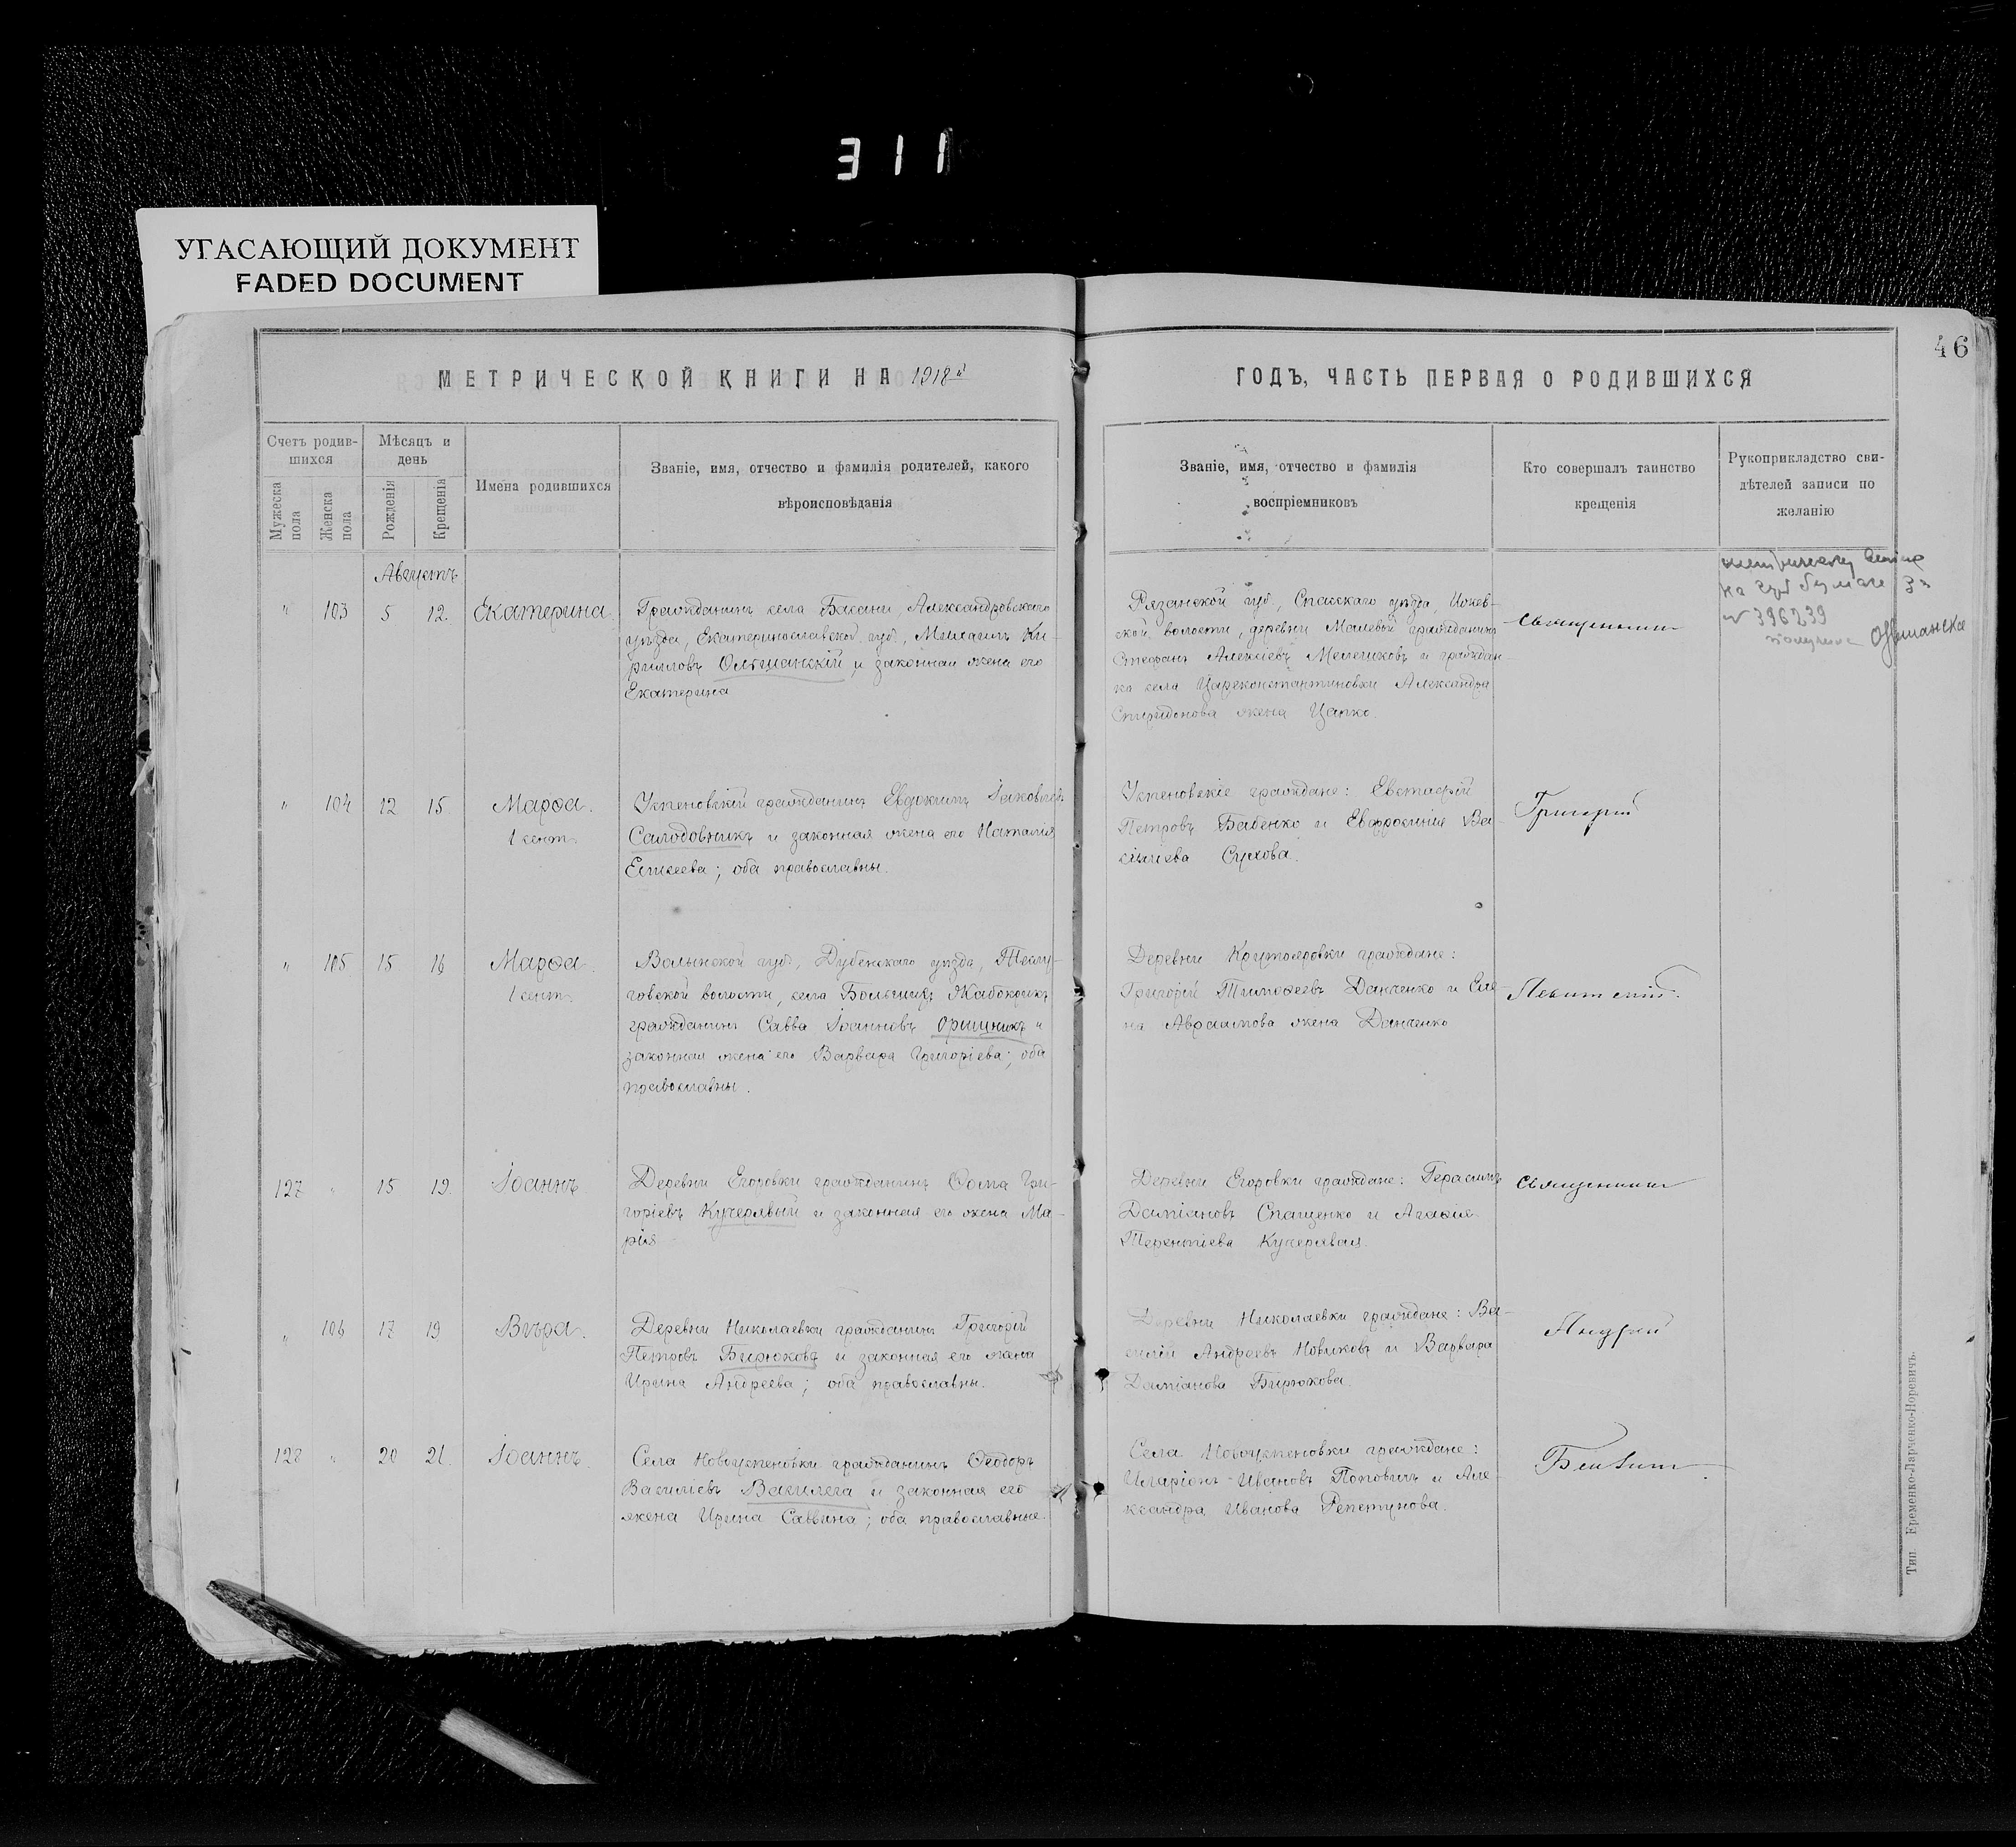 311
УГАСАЮЩИЙ ДОКУМЕНТ
FADED DOCUMENT
46
МЕТРИЧЕСКОЙ КНИГИ НА 1918 й
ГОДЪ, ЧАСТЬ ПЕРВАЯ О РОДИВШИХСЯ
Счетъ родив-
шихся
Мужеска пола
Женска пола
Мѣсяцъ и
день
Рожденія
Крещенія
Имена родившихся
Званіе, имя, отчество и фамилія родителей, какого
вѣроисповѣданія
Званіе, имя, отчество и фамилія
воспріемниковъ
Кто совершалъ таинство
крещенія
Рукоприкладство сви-
дѣтелей записи по
желанію
Августъ
" 103 5 12. Екатерина.
Гражданинъ села Басани, Александровскаго
уѣзда, Екатеринославской губ., Михаилъ Ки-
рилловъ Ольшанскій и законная жена его
Екатерина
Рязанской губ., Спасскаго уѣзда,
ской волости, деревни Малевой гражданинъ
Стефанъ Алексіевъ Мелешковъ и граждан-
ка села Цареконстантиновки Александра
Спиридонова жена Цапко.
Священникъ
на бумаге за
№ 396239
Ольшанска
" 104 12 15. Марѳа.
1 сент.
Успеновскій гражданинъ Евдокимъ Іаковлевъ
Салодовникъ и законная жена его Наталія
Елисеева; оба православны.
Успеновскіе граждане: Евстафій
Петровъ Бабенко и Евфросинія Ва-
силіева Сухова.
Григорій
" 105 15 16 Марѳа.
1 сент.
Волынской губ., Дубенскаго уѣзда, Теслу-
говской волости, села Большихъ Жабокрикъ
гражданинъ Савва Іоанновъ Орищникъ и
законная жена его Варвара Григоріева; оба
православны.
Деревни Крутояровки граждане:
Григорій Тимоѳеевъ Данченко и Еле-
на Авраамова жена Данченко
Левитскій.
127 " 15 19. Іоаннъ
Деревни Егоровки гражданинъ Ѳома Гри-
горіевъ Кучерявый и законная его жена Ма-
рія
Деревни Егоровки граждане: Герасимъ
Даміановъ Спащенко и Агаѳія
Терентіева Кучерявая.
Священникъ
" 106 17 19 Вѣра.
Деревни Николаевки гражданинъ Григорій
Петровъ Бирюковъ и законная его жена
Ирина Андреева; оба православны.
Деревни Николаевки граждане: Ва-
силій Андреевъ Новиковъ и Варвара
Даміанова Бирюкова.
128 " 20 21. Іоаннъ.
Села Новоуспеновки гражданинъ Ѳеодоръ
Василіевъ Василега и законная его
жена Ирина Саввина; оба православные.
Села Новоуспеновки граждане:
Иларіонъ Ивановъ Поповичъ и Але-
ксандра Иванова Репетунова.
Тип. Еременко-Ларченко-Норевичъ.